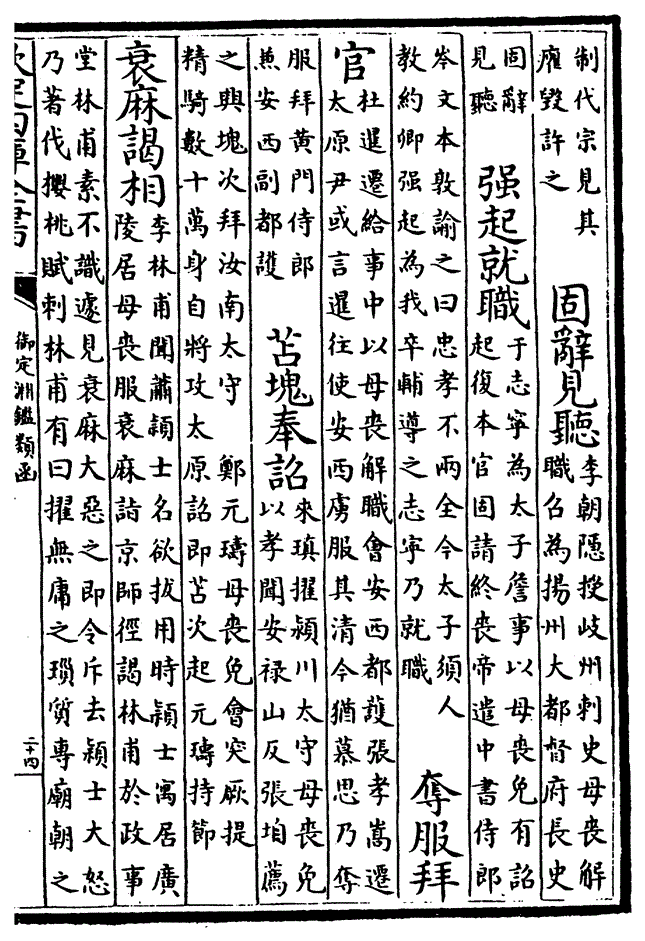 制代宗見其
癯毀許之
固辭見聽
李朝隱授岐州刺史母喪解
職召為揚州大都督府長史
固辭
見聽
强起就職
于志寧為太子詹事以母喪免有詔
起復本官固請終喪帝遣中書侍郎
岑文本敦諭之曰忠孝不兩全今太子須人
教約卿强起為我卒輔導之志寧乃就職
奪服拜
官
杜暹遷給事中以母喪解職會安西都護張孝嵩遷
太原尹或言暹往使安西虜服其清今猶慕思乃奪
服拜黄門侍郎
兼安西副都護
苫塊奉詔
來瑱擢潁川太守母喪免
以孝聞安禄山反張垍薦
之興塊次拜汝南太守 鄭元璹母喪免會突厥提
精騎數十萬身自將攻太原詔即苫次起元璹持節
衰麻謁相
李林甫聞蕭穎士名欲拔用時穎士寓居廣
陵居母喪服衰麻詣京師徑謁林甫於政事
堂林甫素不識遽見衰麻大惡之即令斥去穎士大怒
乃著伐櫻桃賦刺林甫有曰擢無庸之瑣質專廟朝之
欽定四庫全書
御定淵鑑類函
二十四